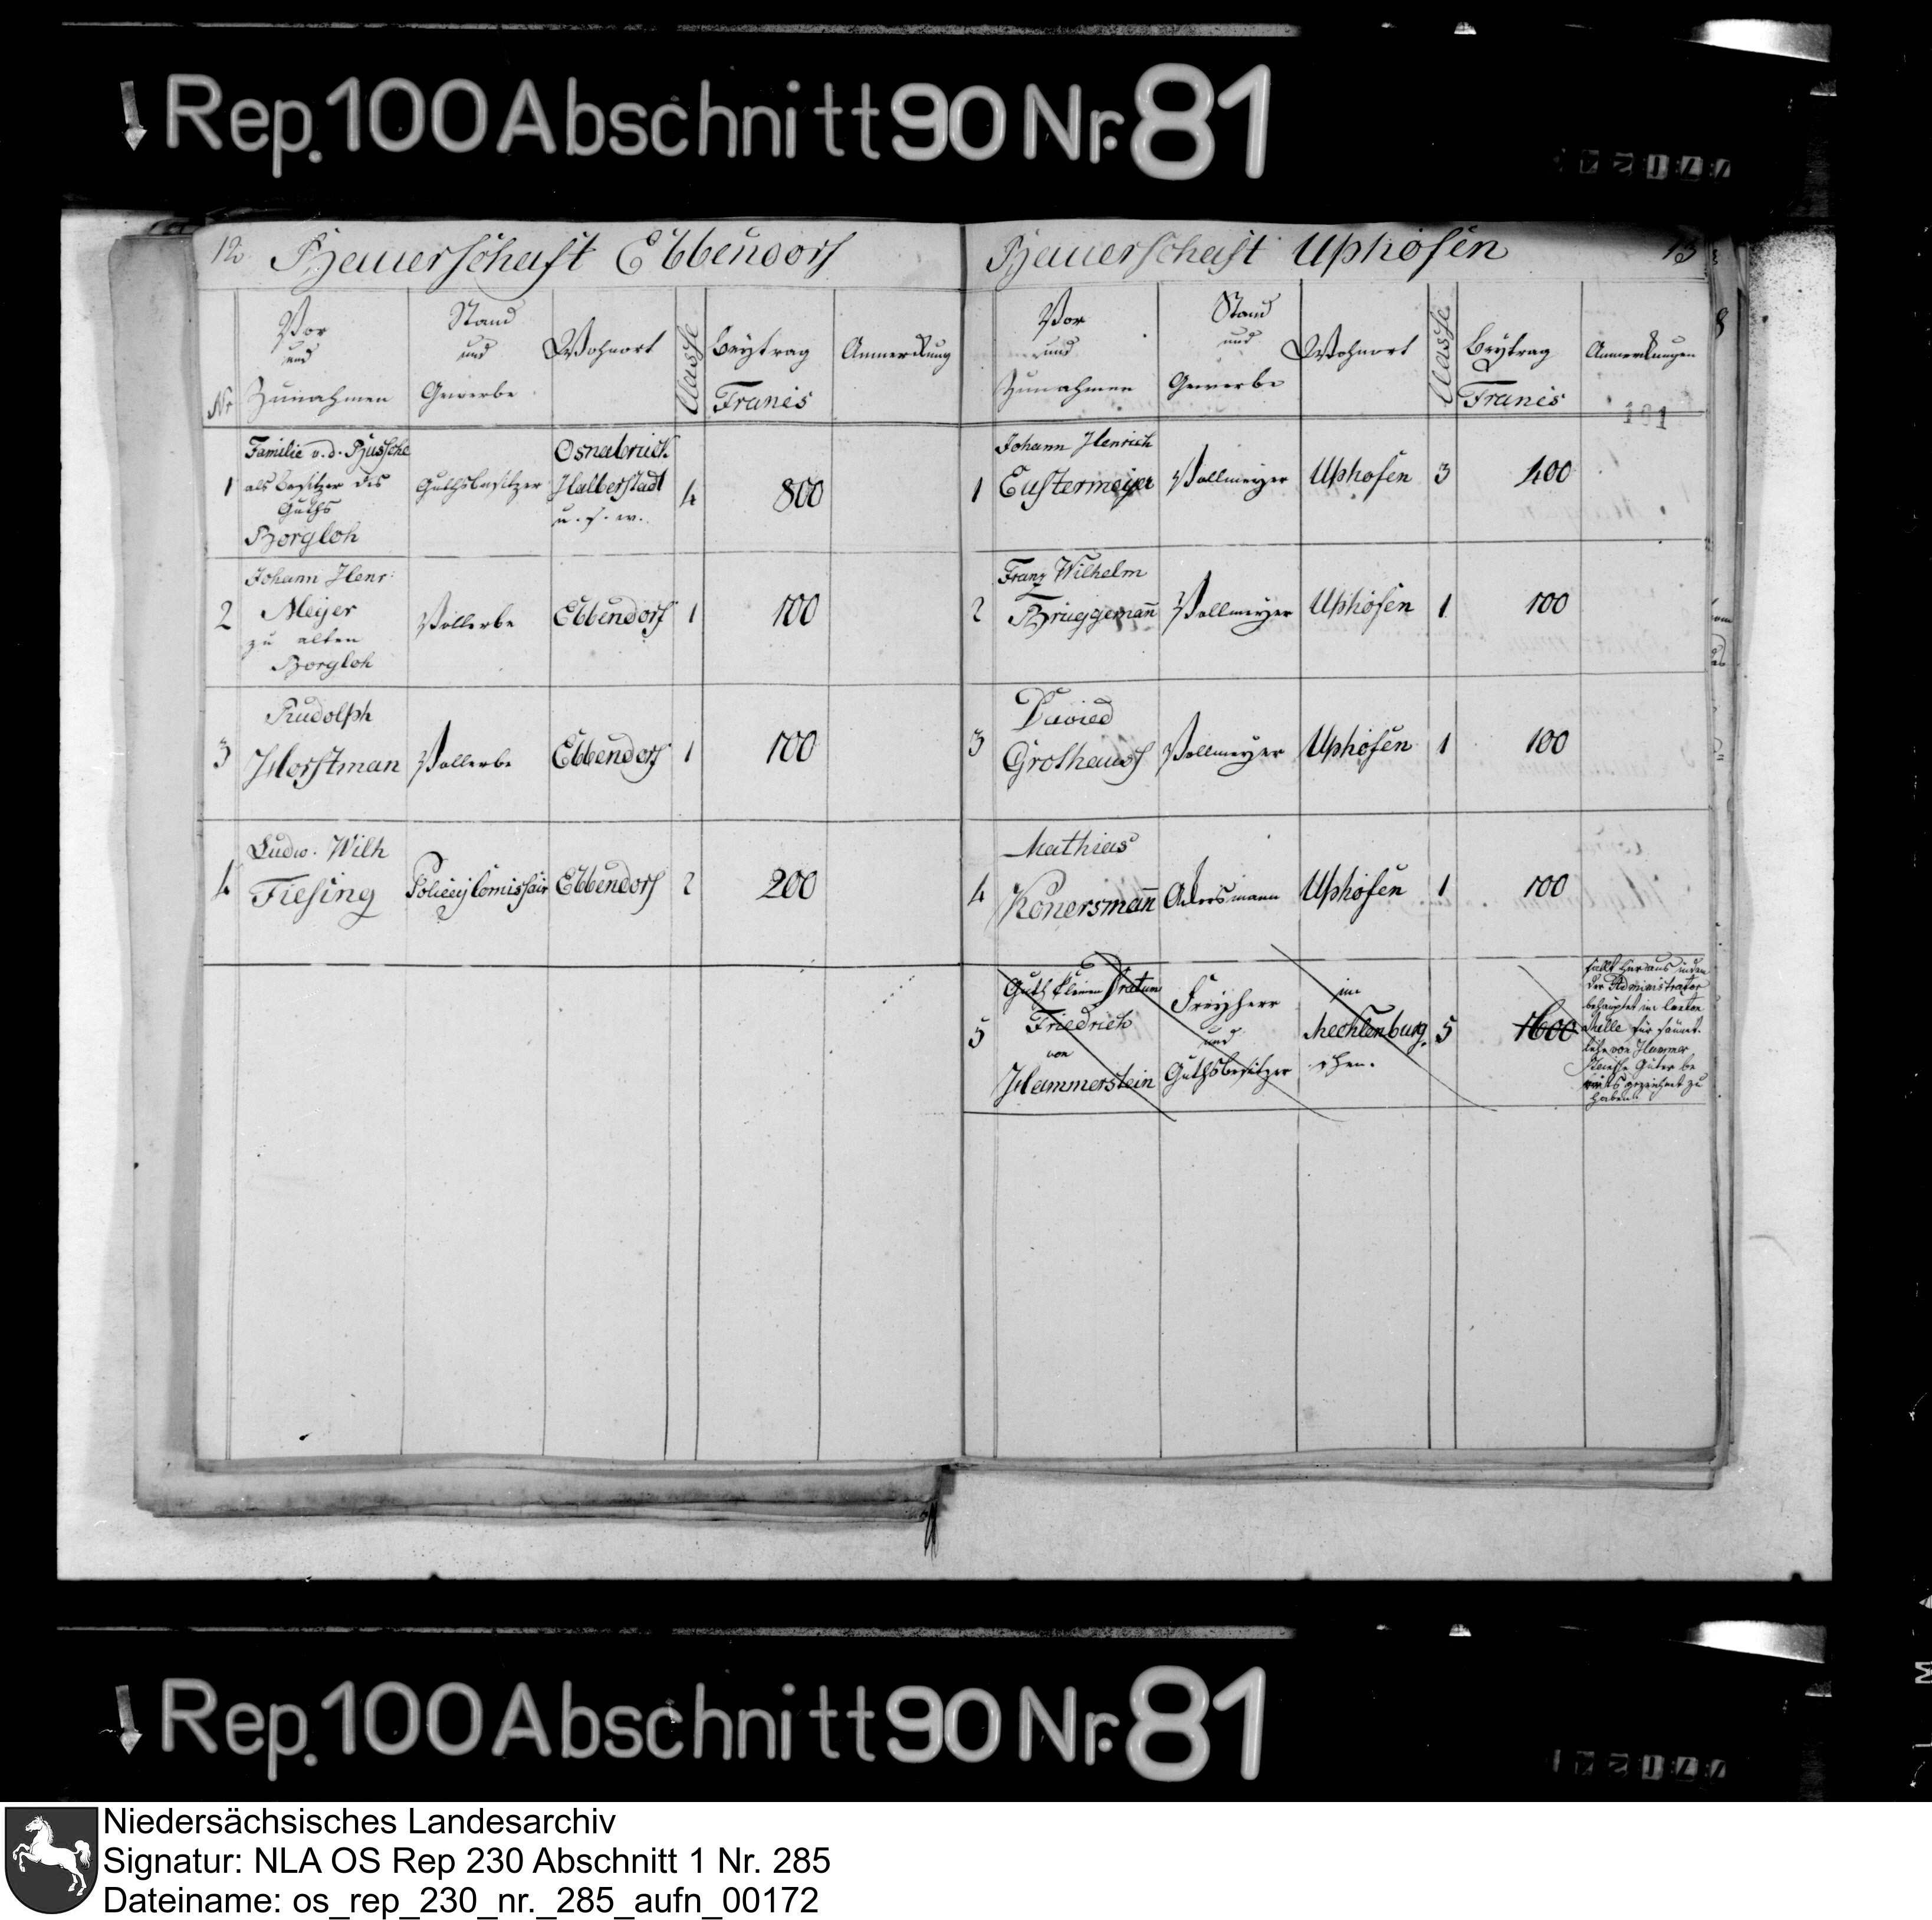 Rep. 100 Abschnitt 90 Nr. 81
12 Bauerschaft Ebbendorf
Nr Vor und Zunahmen Stand und Gewerbe Wohnort Classe Beytrag Francs Anmerckung
1 Familie v. d. Bussche als Besitzer des Guths Borgloh Guthsbesitzer Osnabrück Halberstadt u. s. w. 4 800
2 Johann Henr: Meijer zu alten Borgloh Vollerbe Ebbendorf 1 100
3 Rudolph Horstman Vollerbe Ebbendorf 1 100
4 Ludw. Wilh Fiesing Policeij Comissair Ebbendorf 2 200
Bauerschaft Uphöfen 13
Vor und Zunahmen Stand und Gewerbe Wohnort Classe Beytrag Francs Anmerckungen
101
1 Johann Henrich Eustermeijer Vollmeyer Uphofen 3 400
2 Franz Wilhelm Brüggemann Vollmeyer Uphöfen 1 100
3 David Grothaus Vollmeyer Uphöfen 1 100
4 Mathias Könersmann Ackersmann Uphöfen 1 100
5 Guth kleinen Dratum Friedrich von Hammerstein Freyherr und Guthsbesitzer im Mecklenburg. schen. 5 1600
fällt heraus indem
der Administrator
behauptet im Canton
Melle für sämmt-
liche von Hammer
steinsche Güter be
reits gezeichnet zu
haben.
Rep. 100 Abschnitt 90 Nr. 81
Niedersächsisches Landesarchiv
Signatur: NLA OS Rep 230 Abschnitt 1 Nr. 285
Dateiname: os_rep_230_nr._285_aufn_00172